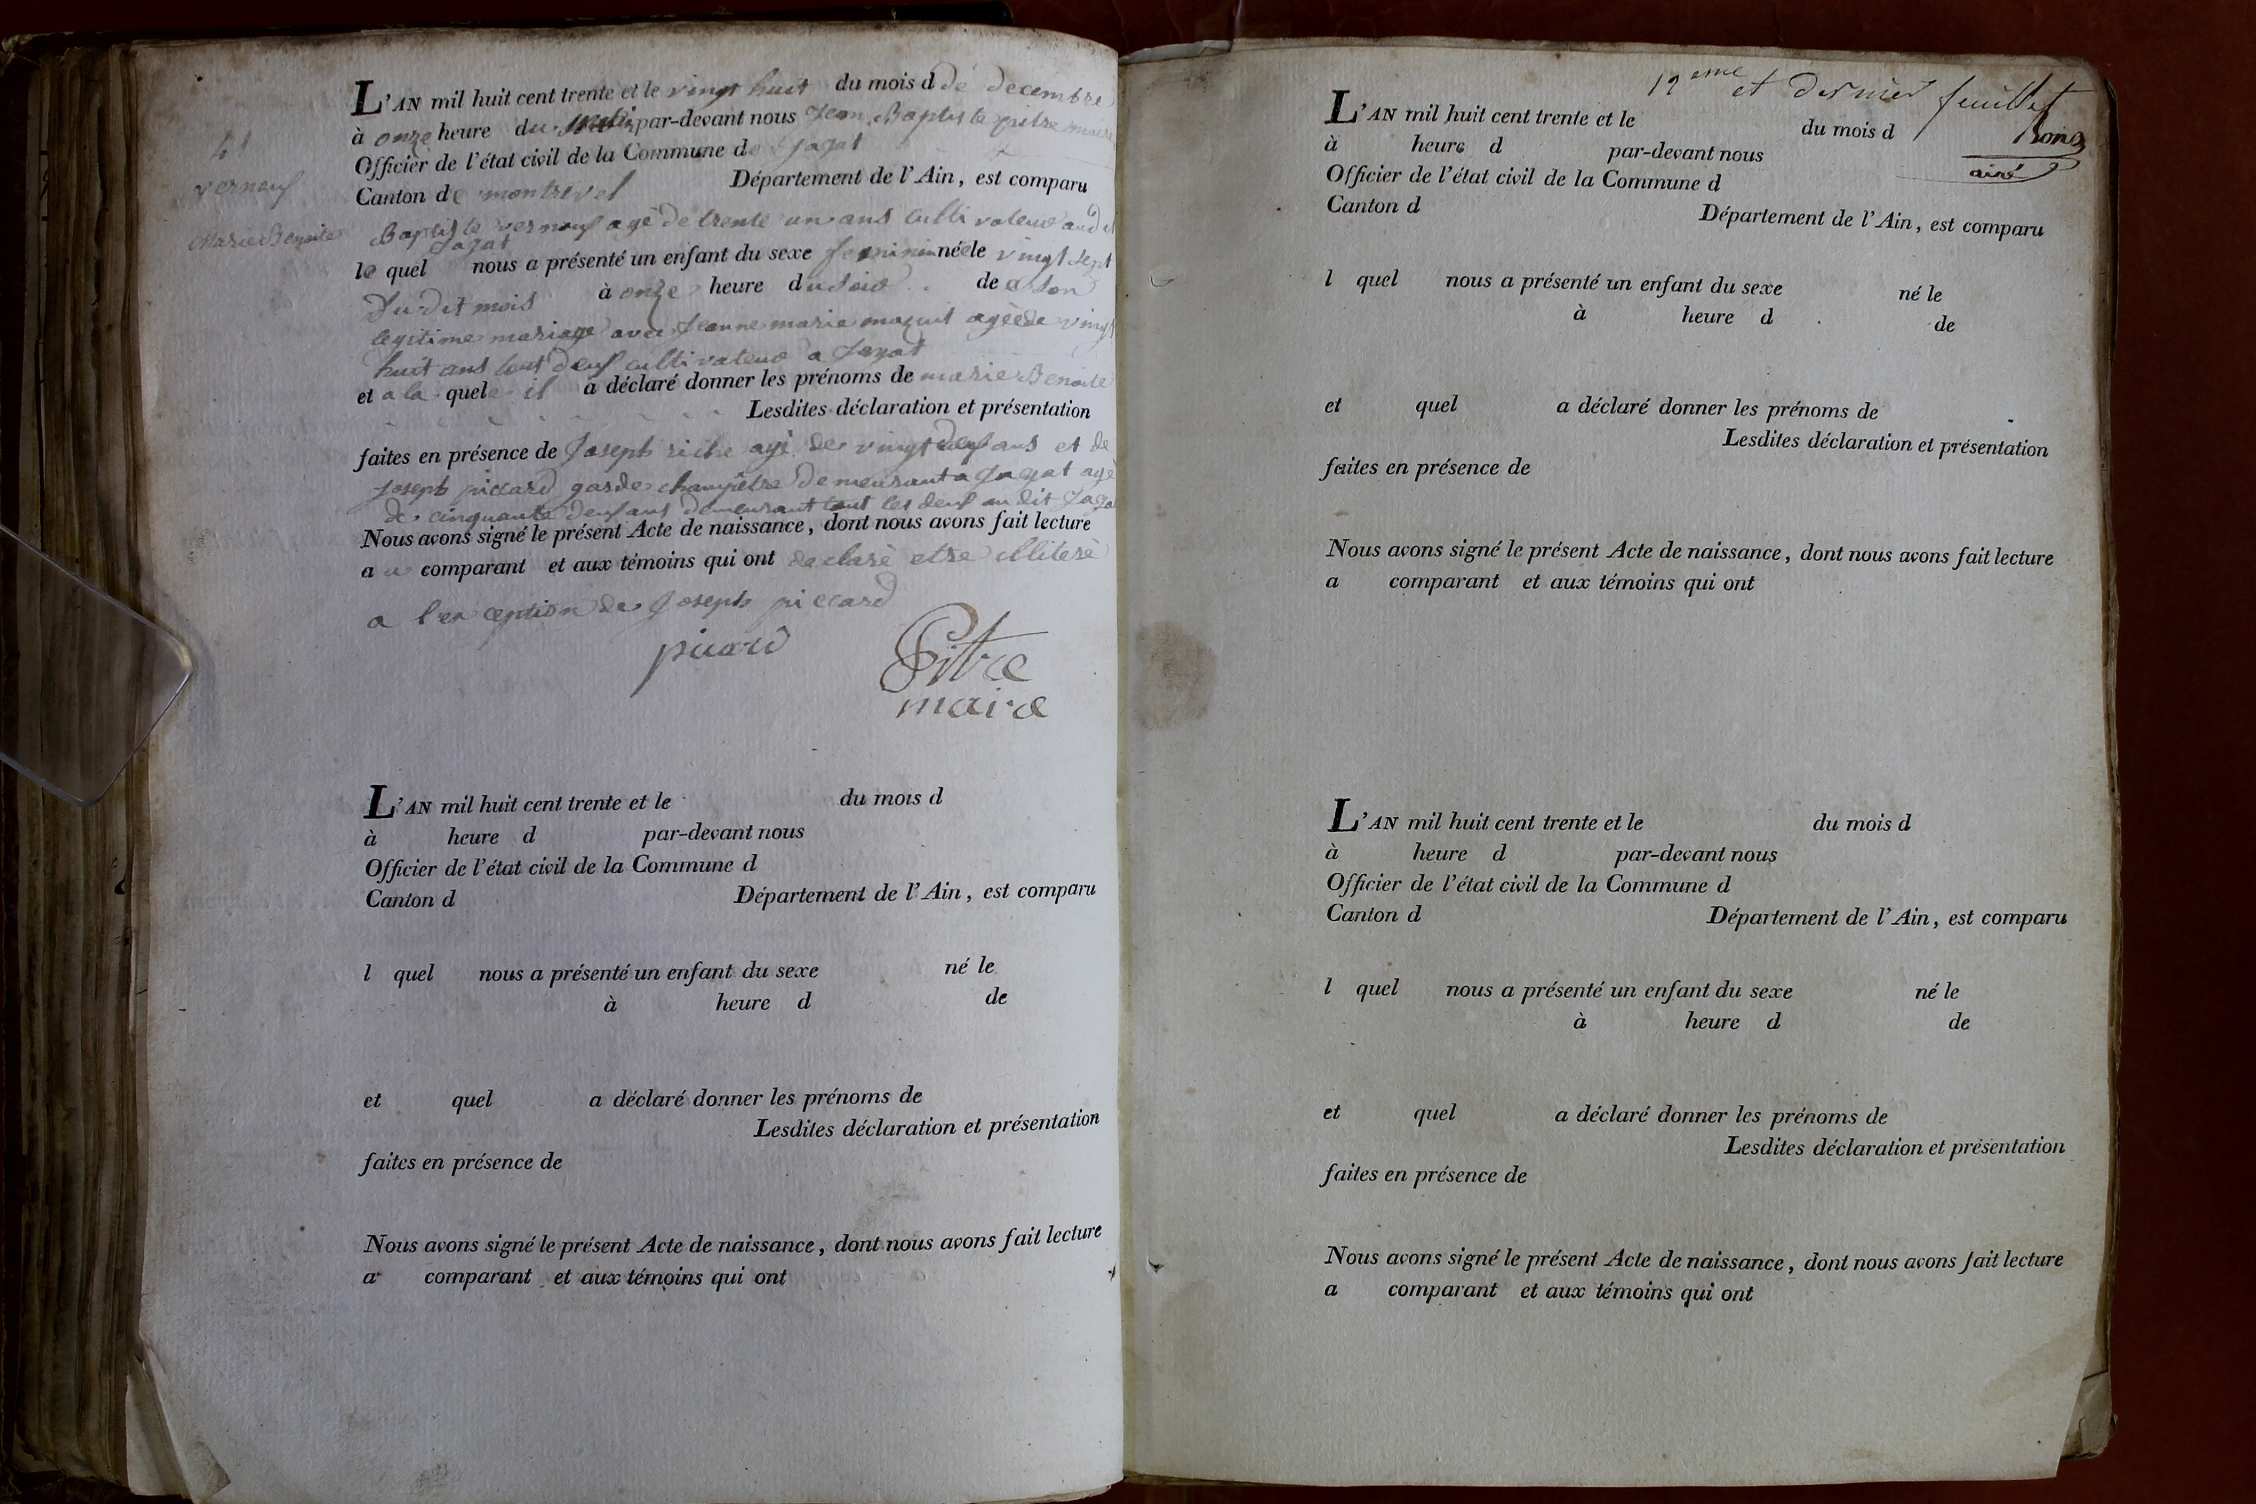 41
verneuf
Marie Benoite
L'AN mil huit cent trente et le vingt huit du mois d de decembre
à onze heure du matin par-devant nous Jean Baptiste pitre maire
Officier de l'état civil de la Commune de Jayat
Canton de montrevel Département de l'Ain, est comparu
Baptiste verneuf agé de trente un ans cultivateur audit
Jayat
le quel nous a présenté un enfant du sexe feminin née le vingt sept
du dit mois à onze heure du soir de son
legitime mariage avec Jeanne marie agée de vingt
huit ans tout deuf cultivateur a Jayat
et a la quele il a déclaré donner les prénoms de marie Benoite
Lesdites déclaration et présentation
faites en présence de Joseph agé de vingt deuf ans et de
joseph piccard garde champêtre demeurant a Jayat agé
de cinquante deuf ans demeurant tout les deuf au dit Jayat
Nous avons signé le présent Acte de naissance, dont nous avons fait lecture
au comparant et aux témoins qui ont declaré etre illiteré
a l'exception de Joseph piccard
picard
Pitre
maire
L'AN mil huit cent trente et le du mois d
à heure d par-devant nous
Officier de l'état civil de la Commune d
Canton d Département de l'Ain, est comparu
l quel nous a présenté un enfant du sexe né le
à heure d de
et quel a déclaré donner les prénoms de
Lesdites déclaration et présentation
faites en présence de
Nous avons signé le présent Acte de naissance, dont nous avons fait lecture
a comparant et aux témoins qui ont
12eme et dernier feuillet
L'AN mil huit cent trente et le du mois d
à heure d par-devant nous
Officier de l'état civil de la Commune d
Canton d Département de l'Ain, est comparu
l quel nous a présenté un enfant du sexe né le
à heure d de
et quel a déclaré donner les prénoms de
Lesdites déclaration et présentation
faites en présence de
Nous avons signé le présent Acte de naissance, dont nous avons fait lecture
a comparant et aux témoins qui ont
L'AN mil huit cent trente et le du mois d
à heure d par-devant nous
Officier de l'état civil de la Commune d
Canton d Département de l'Ain, est comparu
l quel nous a présenté un enfant du sexe né le
à heure d de
et quel a déclaré donner les prénoms de
Lesdites déclaration et présentation
faites en présence de
Nous avons signé le présent Acte de naissance, dont nous avons fait lecture
a comparant et aux témoins qui ont